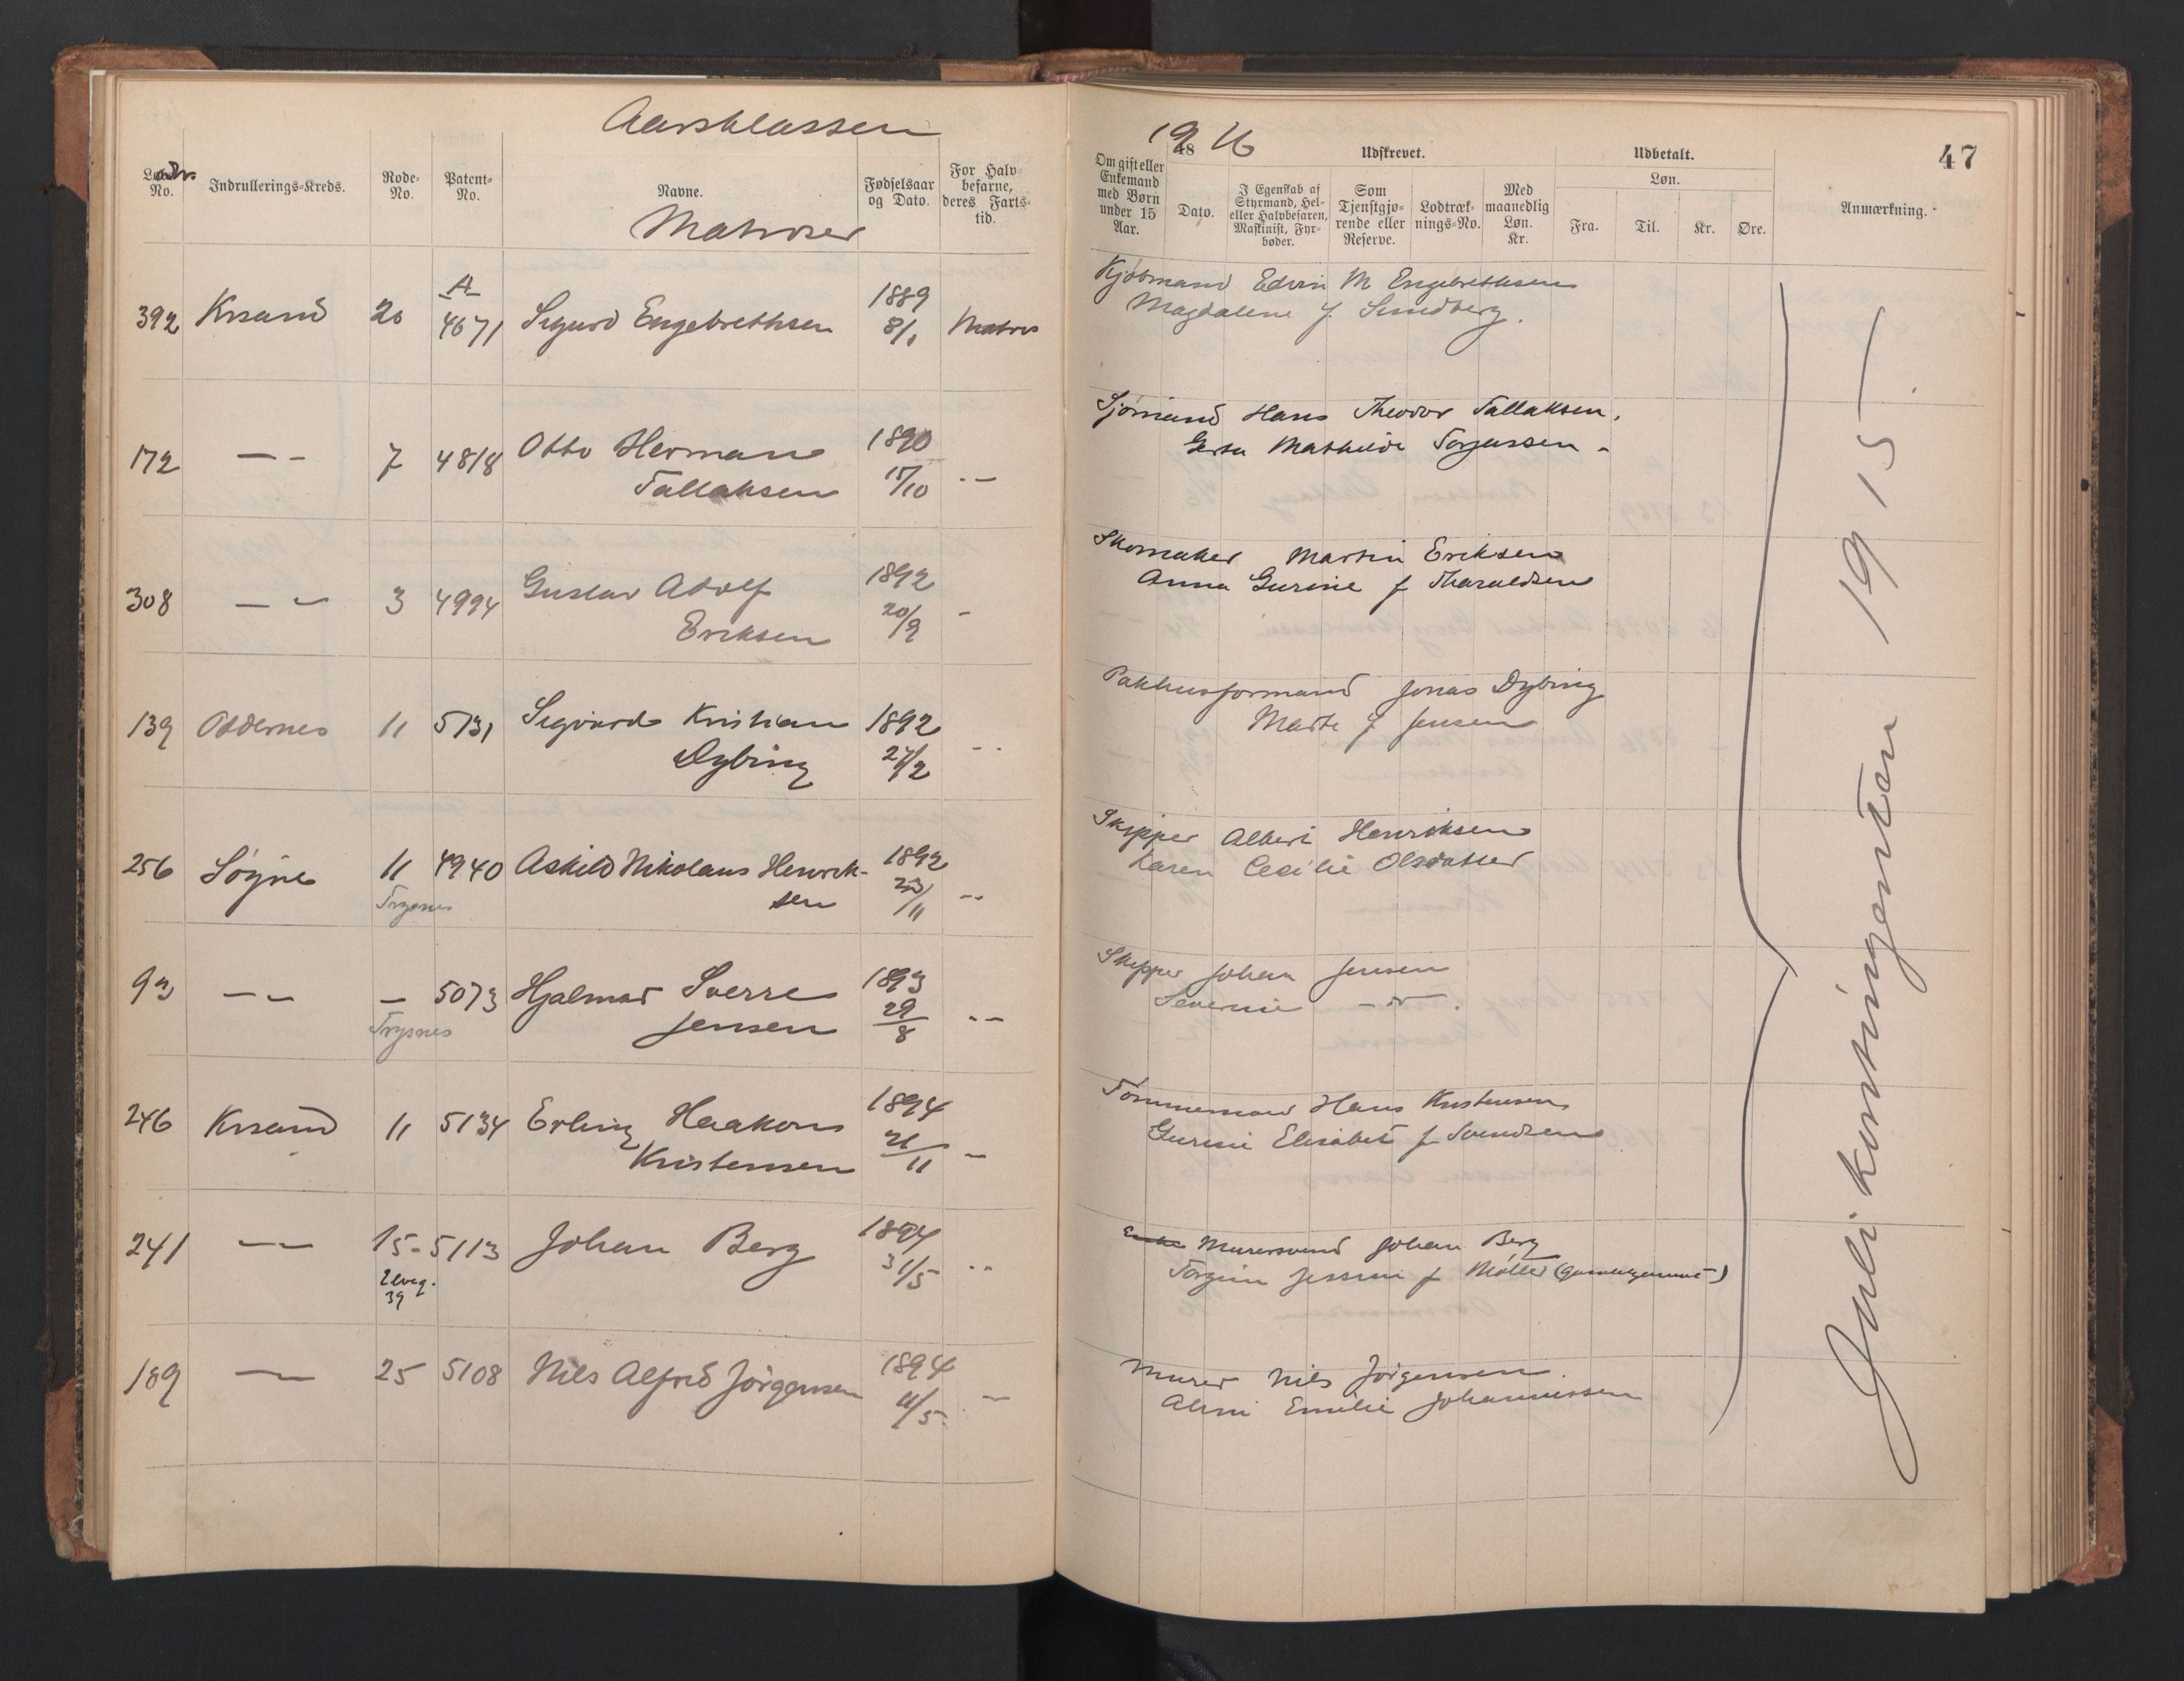 Aarsklassen
1916
47
No.
Indrullerings-Kreds.
Rode-No.
Patent-No.
Navne.
Fødselsaar og Dato.
For Halvbefarne, deres Fartstid.
Matroser
Om gift eller Enkemand med Børn under 15 Aar.
Udskrevet.
Dato.
I Egenskab af Styrmand, Hel- eller Halvbefaren, Maskinist, Fyrbøder.
Som Tjenstgjørende eller Reserve.
Lodtræknings-No.
Med maanedlig Løn. Kr.
Udbetalt.
Løn.
Fra.
Til.
Kr.
Øre.
Anmærkning.
392 Krsand 20 A 4671 Sigurd Engebrethsen 1889 8/1 Matros
Kjøbmand Edvin M Engebrethsen
Magdalene f. Sundberg.
172 — - 7 4818 Otto Herman
Tallaksen 1890 17/10 - —
Sjømand Hans Theodor Tallaksen.
Mathilde Torjussen -
308 — - 3 4994 Gustav Adolf
Eriksen 1892 20/9 -
Skomaker Martin Eriksen
Anna Gurine f Tharaldsen
139 Oddernes 11 5131 Sigvard Kristian
Dybing 1892 27/2 - -
Pakhusformand Jonas Dybing
Marte f Jensen
256 Søgne 11 4940 Askild Nikolaus Henrik-
sen 1892 23/11 - -
Trysnes
Skipper Albert Henriksen
Karen Cecilie Olsdatter
93 — - — 5073 Hjalmar Sverre
Jensen 1893 29/8 - -
Trysnes
Skipper Johan Jensen
Severine — " — .
246 Krsand 11 5134 Erling Haakon
Kristensen 1894 21/11 -
Tømmermand Hans Kristensen
Gurine Elisabet f Svendsen
241 — - 15 - 5113 Johan Berg 1894 31/5 - -
Elveg.
39
Murersvend Johan Berg
Jessine f Møller
189 — - 25 5108 Nils Alfred Jørgensen 1894 11/5 -
Murer Nils Jørgensen
Emilie Johannessen
Juli kontingenten 1915 —